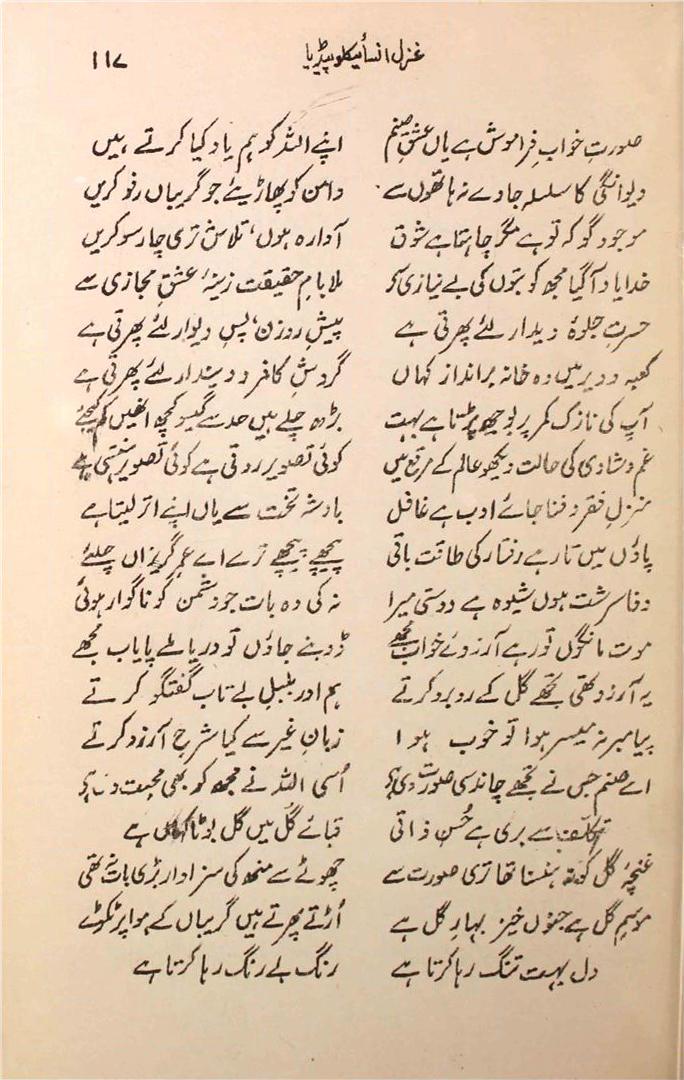 غزل انسائیکلوپیڈیا ۱۱۷
صورتِ خواب فراموش ہے یاں عشقِ صنم اپنے اللہ کو ہم یاد کیا کرتے ہیں
دیوانگی کا سلسلہ جاوے نہ ہاتھوں سے دامن کو پھاڑیئے جو گریباں رفو کریں
موجود گو کہ تو ہے مگر چاہتا ہے شوق آوارہ ہوں، تلاش تری چار سو کریں
خدا یاد آ گیا مجھ کو بتوں کی بے نیازی سے ملا بامِ حقیقت زینۂ عشقِ مجازی سے
حسرتِ جلوۂ دیدار لئے پھرتی ہے پیشِ روزن، پسِ دیوار لئے پھرتی ہے
کعبہ و دیر میں وہ خانہ برانداز کہاں گردشِ کافر و دیندار لئے پھرتی ہے
آپ کی نازک کمر پر بوجھ پڑتا ہے بہت بڑھ چلے ہیں حد سے گیسو کچھ انھیں کم کیجئے
غم و شادی کی حالت دیکھو عالم کے مرقع میں کوئی تصویر روتی ہے کوئی تصویر ہنستی ہے
منزلِ فقر و فنا جائے ادب ہے غافل بادشہ تخت سے یاں اپنے اتر لیتا ہے
پاؤں میں تا رہے رفتار کی طاقت باقی پیچھے پیچھے ترے اے عمرِ گریزاں چلئے
وفا سرشت ہوں شیوہ ہے دوستی میرا نہ کی وہ بات جو دشمن کو ناگوار ہوئی
موت مانگوں تو رہے آرزوئے خواب مجھے ڈوبنے جاؤں تو دریا ملے پایاب مجھے
یہ آرزو تھی تجھے گل کے روبرو کرتے ہم اور بلبلِ بے تاب گفتگو کرتے
پیامبر نہ میسر ہوا تو خوب ہوا زبانِ غیر سے کیا شرحِ آرزو کرتے
اے صنم جس نے تجھے چاند سی صورت دی ہے اُسی اللہ نے مجھ کو بھی محبت دی ہے
تکلف سے بری ہے حُسن ذاتی قبائے گُل میں گل بوٹا کہاں ہے
غنچۂ گل کو نہ ہنسنا تھا تری صورت سے چھوٹے سے منھ کی سزاوار بڑی بات نہ تھی
موسمِ گل ہے جنوں خیز بہارِ گل ہے اُڑتے پھرتے ہیں گریباں کے ہوا پر ٹکڑے
دل بہت تنگ رہا کرتا ہے رنگ بے رنگ رہا کرتا ہے